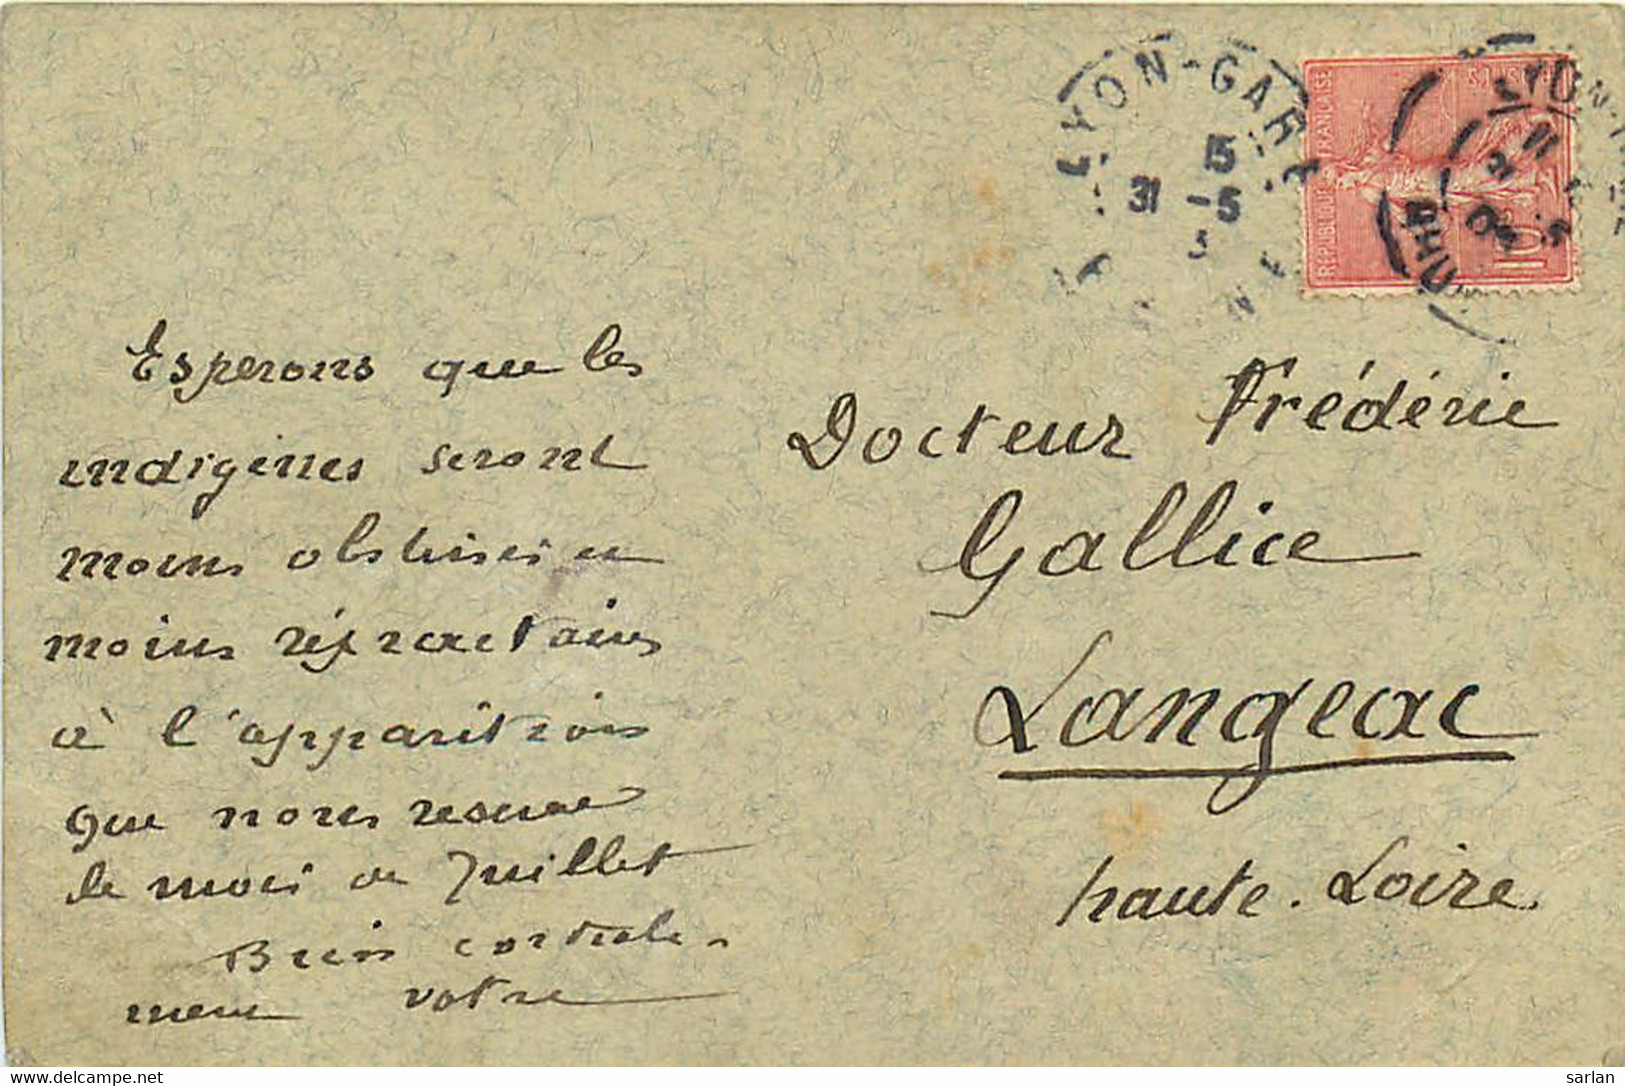 LYON-GARE
15
31 -5
REPUBLIQUE FRANÇAISE
POSTES
10
RHONE
Esperons que les
indigènes seront
moins obstinés en
moins réfractaires
à l'apparition
que nous reserve
le mois de Juillet
Bien cordiale-
ment votre
Docteur Frédéric
Gallice
Langeac
haute-Loire.
delcampe.net
sarlan